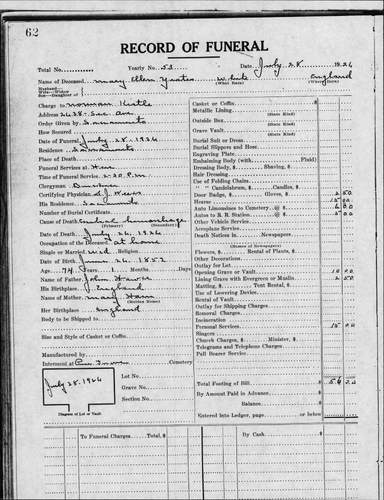 62
RECORD OF FUNERAL
Total No. Yearly No. 53 Date July 28 1926
Name of Deceased Mary Ellen Yeates White England
(What Race) (Where Born)
Husband—
Wife—Widow of
Son—Daughter of
Charge to Norman
Address 2638 - Sac. Ave
Order Given by Sacramento
How Secured
Date of Funeral July 28, 1926
Residence Sacramento
Place of Death
Funeral Services at Here
Time of Funeral Service 2:30 P.M.
Clergyman
Certifying Physician
His Residence Sacramento
Number of Burial Certificate
Cause of Death hemorrhage
(Primary) (Secondary)
Date of Death July 26, 1926
Occupation of the Deceased at home
Single or Married Wed Religion
Date of Birth June 26. 1852
Age 74 Years Months Days
Name of Father John
His Birthplace England
Name of Mother Mary
(Maiden Name)
Her Birthplace England
Body to be Shipped to
Size and Style of Casket or Coffin
Manufactured by
Interment at Cemetery
July 28. 1926
Diagram of Lot or Vault
Lot No.
Grave No.
Section No.
Casket or Coffin
Metallic Lining
(State Kind)
Outside Box
(State Kind)
Grave Vault
(State Kind)
Burial Suit or Dress
Burial Slippers and Hose
Engraving Plate
Embalming Body (with Fluid)
Dressing Body, $ Shaving, $
Hair Dressing
Use of Folding Chairs
" " Candelabrum, $ Candles, $
Door Badge, $ Gloves, $ 2 50
Hearse 15 00
Auto Limousines to Cemetery @ $
Autos to R. R. Station @ $ 5 00
Other Vehicle Service
Aeroplane Service
Death Notices in Newspapers
(Names of Newspapers)
Flowers, $ Rental of Plants, $
Outlay for Lot
Opening Grave or Vault
Lining Grave with Evergreen or Muslin 2 50
Matting, $ Tent Rental, $
Use of Lowering Device
Rental of Vault
Outlay for Shipping Charges
Removal Charges
Incineration
Personal Services 15 00
Singers
Church Charges, $ Minister, $
Telegrams and Telephone Charges
Pall Bearer Service
Total Footing of Bill $
By Amount Paid in Advance
Balance
Entered into Ledger, page or below.
To Funeral Charges Total, $ By Cash $